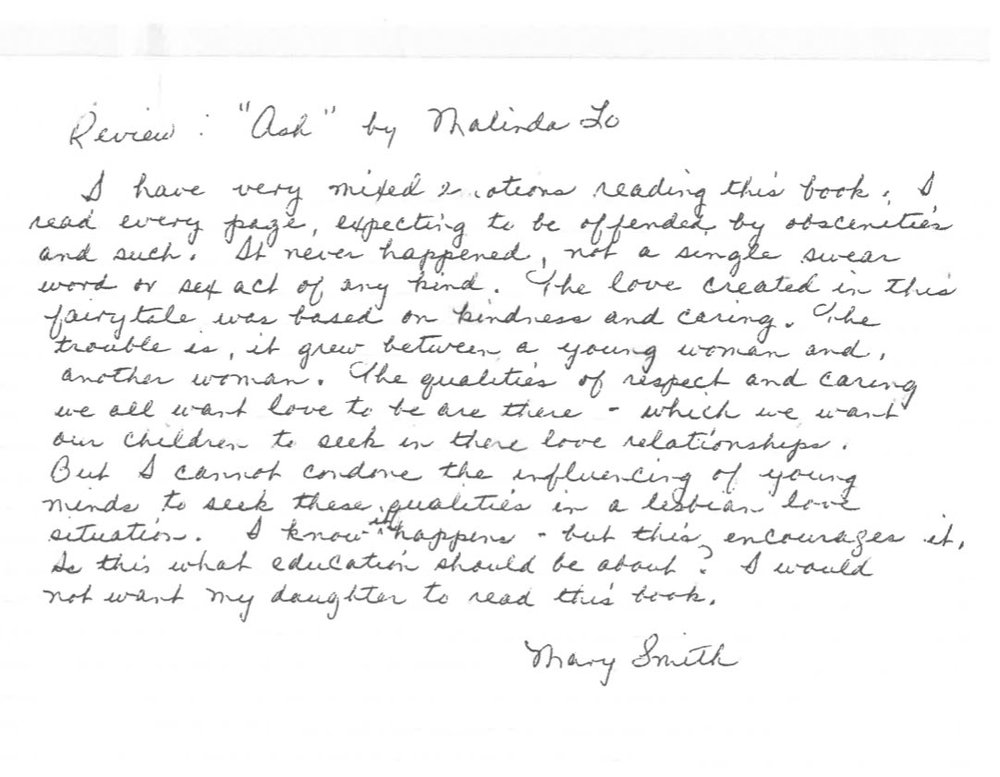 Review : "Ash" by Malinda Lo
I have very mixed otions reading this book. I
read every page, expecting to be offended by obscenities
and such. It never happened, not a single swear
word or sex act of any kind. The love created in this
fairytale was based on kindness and caring. The
trouble is, it grew between a young woman and
another woman. The qualities of respect and caring
we all want love to be are there - which we want
our children to seek in there love relationships.
But I cannot condone the influencing of young
minds to seek these qualities in a lesbian love
situation. I know it happens - but this encourages it.
Is this what education should be about? I would
not want my daughter to read this book.
Mary Smith